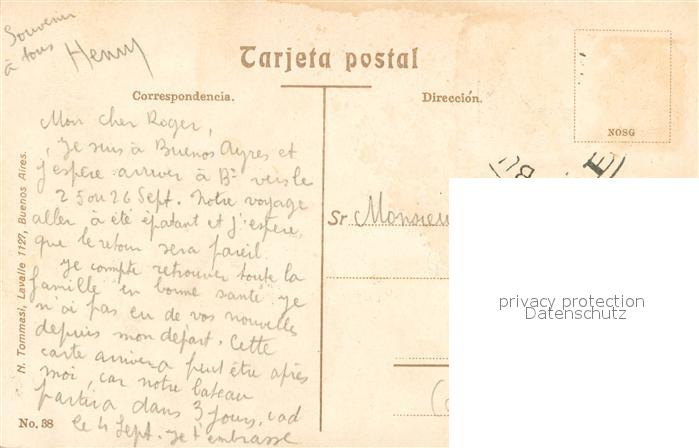 Souvenir
à tous Henry
Tarjeta postal
Correspondencia.
Dirección.
NOSG
Mon cher Roger,
Je suis à Buenos Ayres et
j'espère arriver à Bx vers le
25 ou 26 Sept. Notre voyage
aller à été épatant et j'espère,
que le retour sera pareil.
Je compte retrouver toute la
famille en bonne santé. Je
n'ai pas eu de vos nouvelles
depuis mon départ. Cette
carte arrivera peut être après
moi, car notre bateau
partira dans 3 jours, cad
le 4 Sept. Je t'embrasse
Sr Monsieu
privacy protection
Datenschutz
N. Tommasi, Lavalle 1127, Buenos Aires.
No. 38